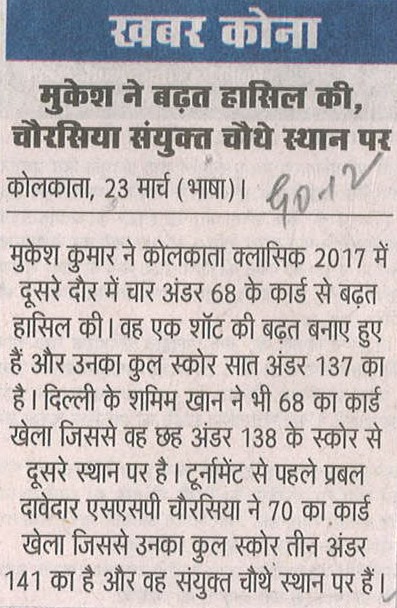 खबर कोना
मुकेश ने बढ़त हासिल की,
चौरसिया संयुक्त चौथे स्थान पर
कोलकाता, 23 मार्च (भाषा)।
मुकेश कुमार ने कोलकाता क्लासिक 2017 में
दूसरे दौर में चार अंडर 68 के कार्ड से बढ़त
हासिल की। वह एक शॉट की बढ़त बनाए हुए
हैं और उनका कुल स्कोर सात अंडर 137 का
है। दिल्ली के शमिम खान ने भी 68 का कार्ड
खेला जिससे वह छह अंडर 138 के स्कोर से
दूसरे स्थान पर है। टूर्नामेंट से पहले प्रबल
दावेदार एसएसपी चौरसिया ने 70 का कार्ड
खेला जिससे उनका कुल स्कोर तीन अंडर
141 का है और वह संयुक्त चौथे स्थान पर हैं।